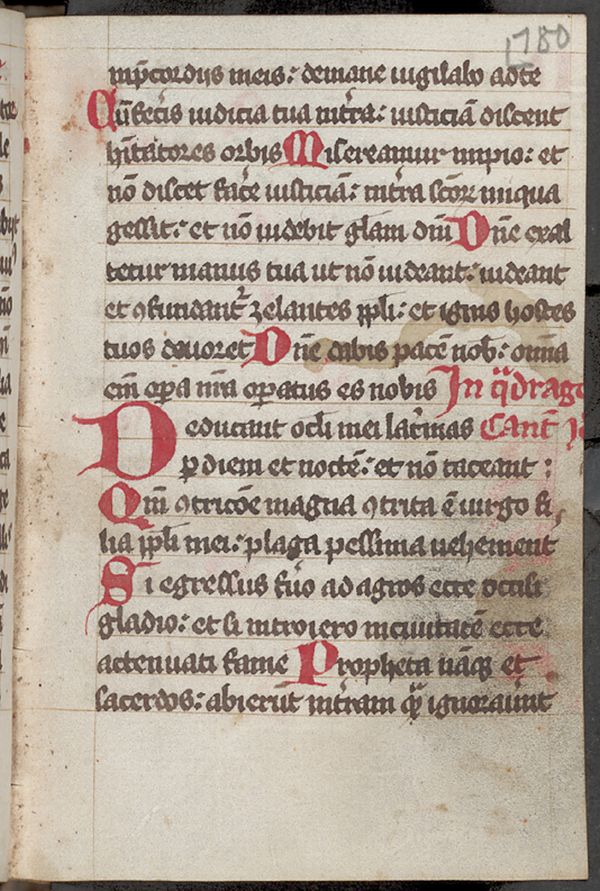 1780
in p̄cordiis meis: de mane uigilabo ad te
Cū feceris iudicia tua in tr̄a: iusticiā discent
hītatores orbis Misereamur impio: et
nō discet fac̄e iusticiā: in tr̄a sc̄or iniqua
gessit: et nō uidebit gl̄am dn̄i Dn̄e exal
tetur manus tua ut nō uideant: uideant
et ꝯfundant᷑ zelantes pp̄li: et ignis hostes
tuos deuoret Dn̄e dabis pacē nob: omīa
em̄ oꝑa nr̄a oꝑatus es nobis In q̄drag
Deducant oc̄li mei lac̄mas Cant̄
ꝑ diem et noctē: et nō taceant:
Qm̄ ꝯtric̄oe magna ꝯtrita ē uirgo fi
lia pp̄li mei: plaga pessima uehement̄
Si egressus fūo ad agros ecce occisi
gladio: et si introiero in ciuitatē ecce
actenuati fame Propheta nāqꝫ et
sacerdos: abierūt in tr̄am q̄ ignoraun̄t